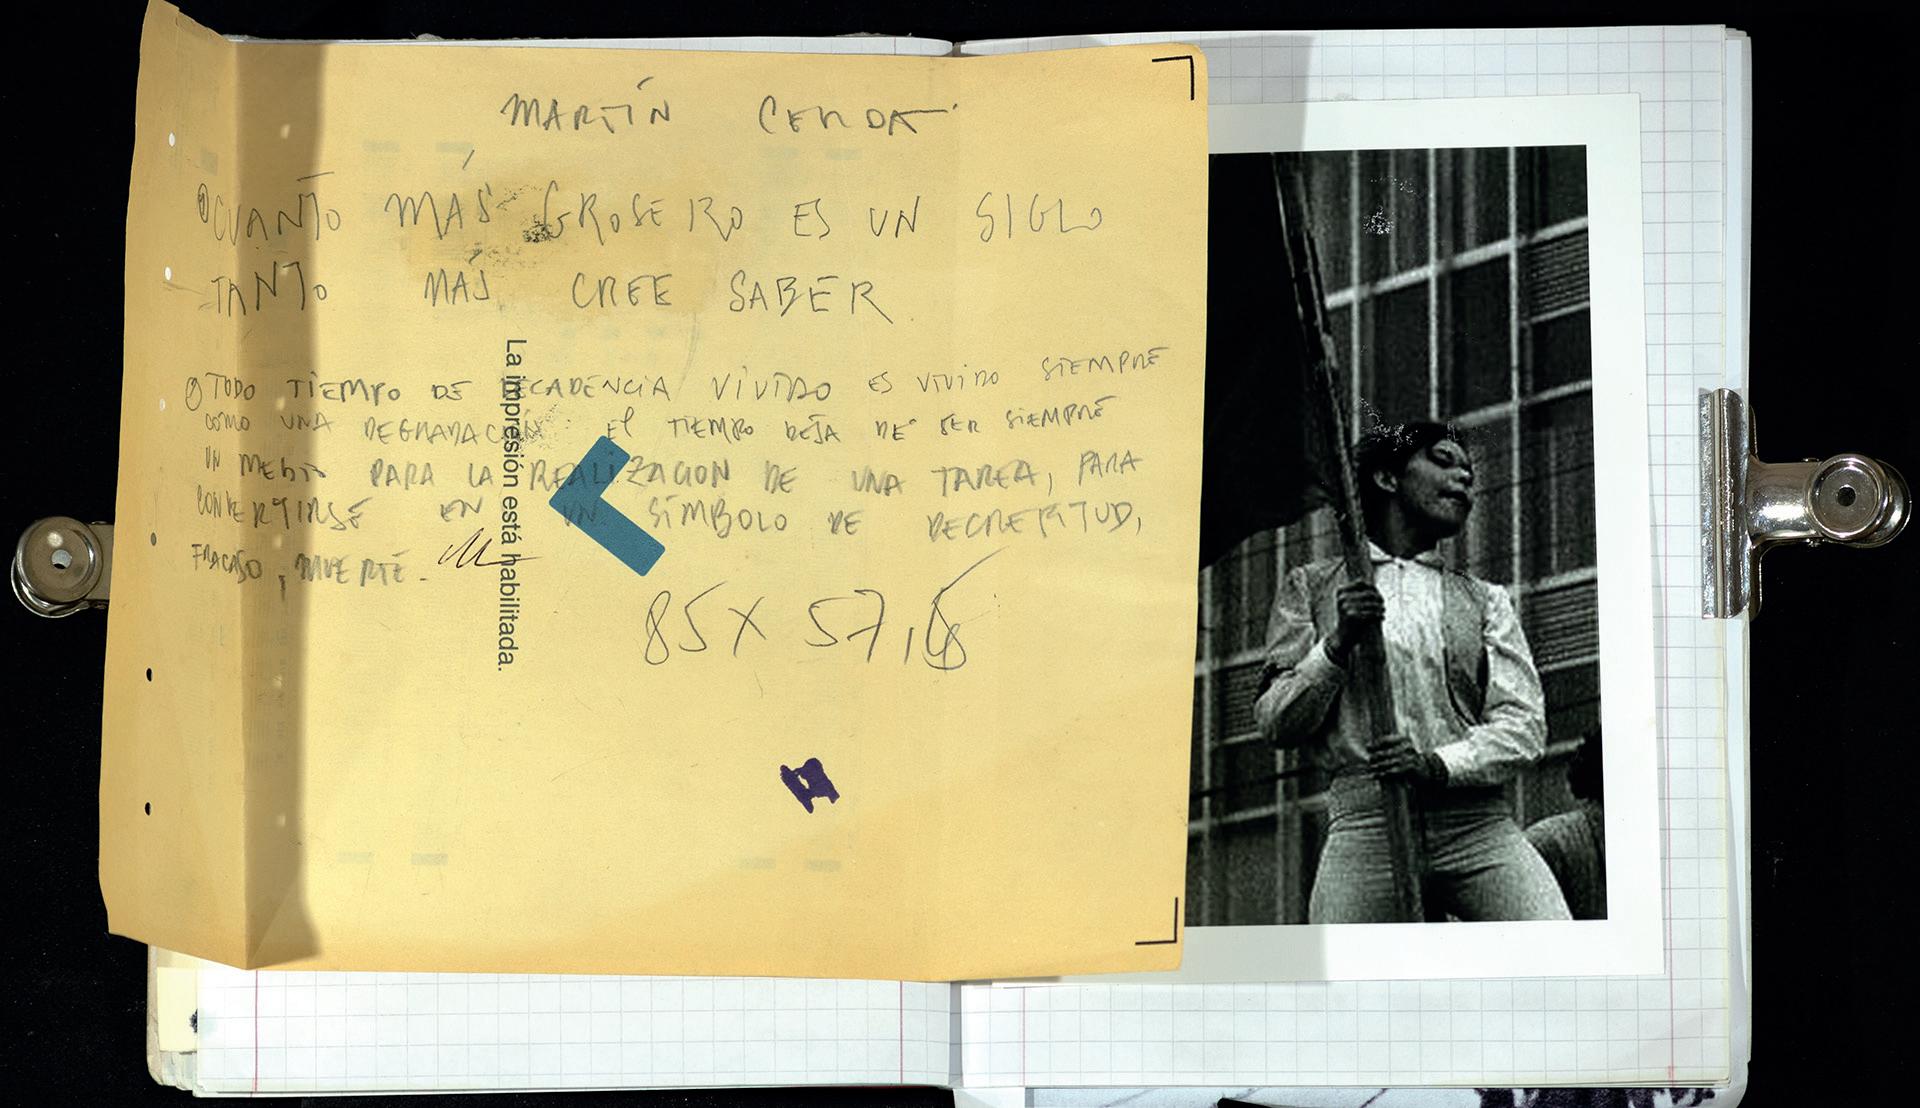 MARTÍN CERDA
① CUANTO MÁS GROSERO ES UN SIGLO
TANTO MÁS CREE SABER
② TODO TIEMPO DE DECADENCIA VIVIDO ES VIVIDO SIEMPRE
COMO UNA DEGRADACIÓN: El TIEMPO DEJA DE SER SIEMPRE
UN MEDIO PARA LA REALIZACION DE UNA TAREA, PARA
CONVERTIRSE EN UN SÍMBOLO DE DECREPITUD,
FRACASO, MUERTE.
La impresión está habilitada.
85 X 57,